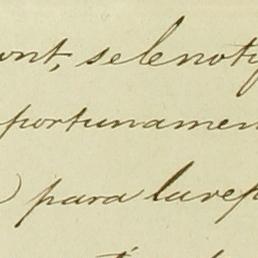 ont, se le notif
portunamen
) para la rep